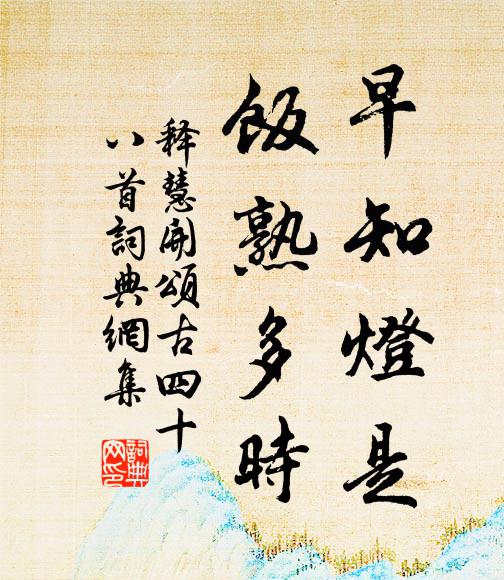 早知燈是
飯熟多時
释慧開頌古四十
八首詞典網集
詞典
网印